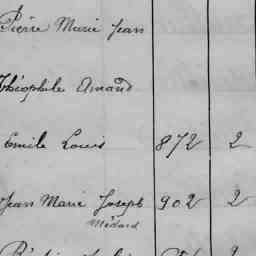 Pierre Marie Jean
Théophile Amand
Emile Louis 872 2
Jean Marie Joseph 902 2
Médard